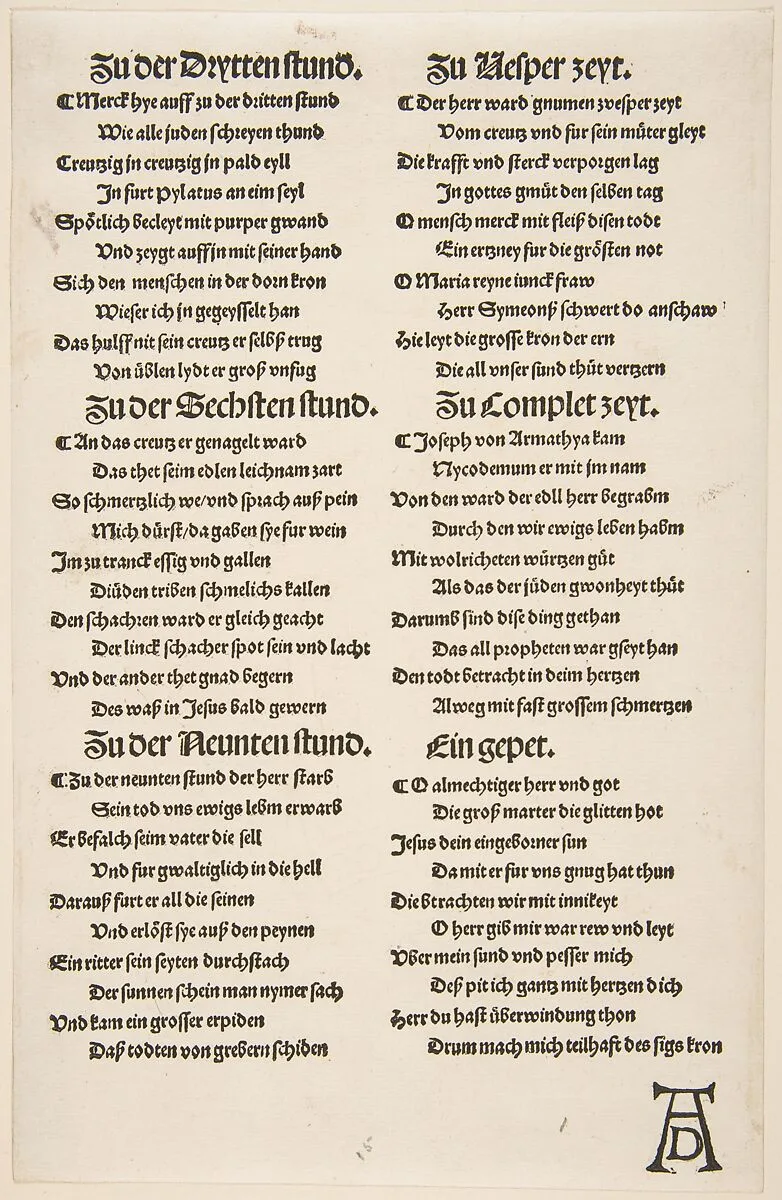 Zu der Drytten stund.
¶ Merck hye auff zu der dritten stund
Wie alle juden schreyen thund
Creutzig jn creutzig jn pald eyll
Jn furt Pylatus an eim seyl
Spötlich becleyt mit purper gwand
Vnd zeygt auff jn mit seiner hand
Sich den menschen in der dorn kron
Wie ser ich jn gegeysselt han
Das hulff nit sein creutz er selbß trug
Von üblen lydt er groß vnfug
Zu der Sechsten stund.
¶ An das creutz er genagelt ward
Das thet seim edlen leichnam zart
So schmertzlich we/vnd sprach auß pein
Mich dürst/da gaben sye fur wein
Jm zu tranck essig vnd gallen
Diüden triben schmelichs kallen
Den schachren ward er gleich geacht
Der linck schacher spot sein vnd lacht
Vnd der ander thet gnad begern
Des waß in Jesus bald gewern
Zu der Neunten stund.
¶ Zu der neunten stund der herr starb
Sein tod vns ewigs lebm erwarb
Er befalch seim vater die sell
Vnd fur gwaltiglich in die hell
Darauß furt er all die seinen
Vnd erlöst sye auß den peynen
Ein ritter sein seyten durchstach
Der sunnen schein man nymer sach
Vnd kam ein grosser erpiden
Daß todten von grebern schiden
Zu Vesper zeyt.
¶ Der herr ward gnumen zvesper zeyt
Vom creutz vnd fur sein müter gleyt
Die krafft vnd sterck verporgen lag
Jn gottes gmüt den selben tag
O mensch merck mit fleiß disen todt
Ein ertzney fur die grösten not
O Maria reyne iunckfraw
Herr Symeonß schwert do anschaw
Hie leyt die grosse kron der ern
Die all vnser sund thüt vertzern
Zu Complet zeyt.
¶ Joseph von Armathya kam
Nycodemum er mit jm nam
Von den ward der edll herr begrabm
Durch den wir ewigs leben habm
Mit wolricheten würtzen güt
Als das der jüden gwonheyt thüt
Darumb sind dise ding gethan
Das all propheten war gseyt han
Den todt betracht in deim hertzen
Alweg mit fast grossem schmertzen
Ein gepet.
¶ O almechtiger herr vnd got
Die groß marter die glitten hot
Jesus dein eingeborner sun
Da mit er fur vns gnug hat thun
Die btrachten wir mit innikeyt
O herr gib mir war rew vnd leyt
Vber mein sund vnd pesser mich
Deß pit ich gantz mit hertzen dich
Herr du hast überwindung thon
Drum mach mich teilhaft des sigs kron
AD
15
1